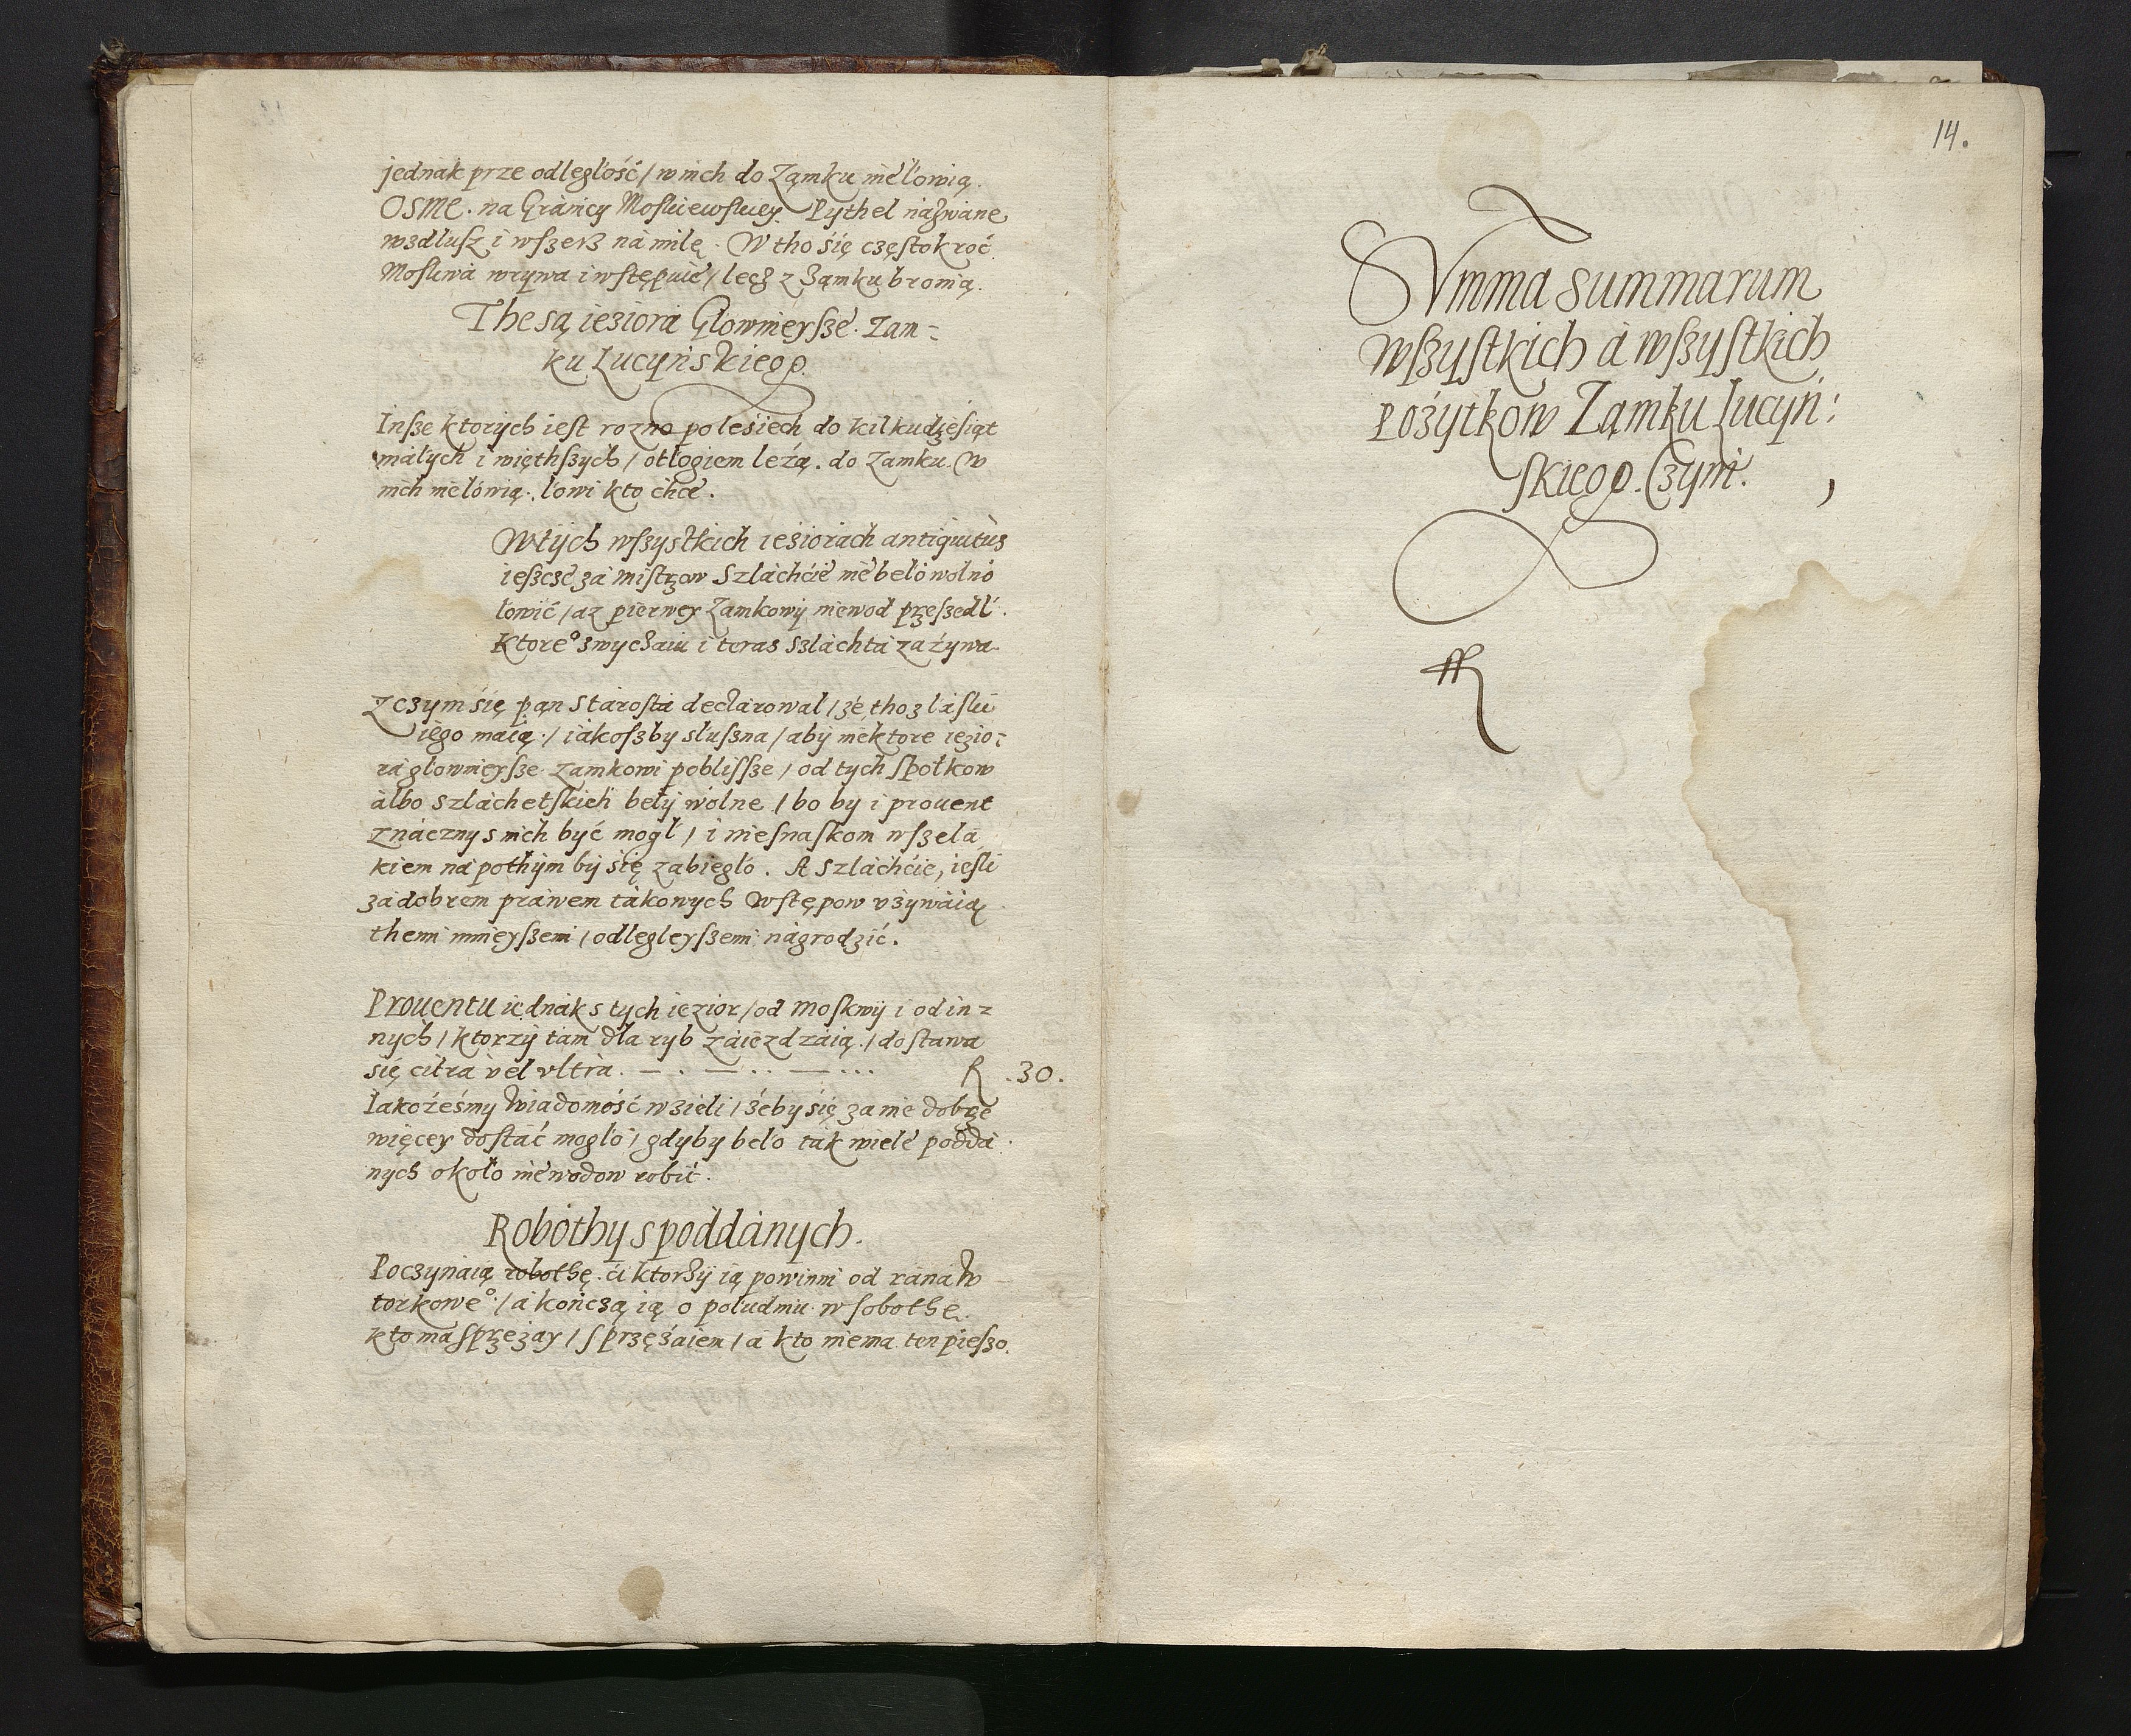 jednák prze odległość / w nich do Ząmku niełowią.
OSME. na Gránicy Moskiewskiey. Pythel názwáne
wzdłusz i wszerz ná milę. W tho się częstokroć
Moskwá wrywa i wstępuie / lecz z Ząmku bronią.
The są ieziorá Głownieysze. Zam=
ku Lucyńskiego.
Insze ktorych iest rozno po lesiech do kilkudziesiąt
małych i więthszych / otłogiem leżą. do Zamku. W
nich niełowią. łowi kto chce.
W tych wszystkich ieziorách antiquitùs
ieszcze zá mistrzow Szláchćie nie beło wolno
łowić / az pierwey Zamkowy niewod przeszedł.
Ktore° zwyczaiu i teras szláchtá zażywa.
Z czym się pan Stárosta declárował / że tho z łáski
iego maią. / iákoszby słuszna / aby niektore iezio=
rá głownieysze zamkowi poblissze / od tych społkow
álbo szláchetskich beły wolne / bo by i prouent
znáczny s nich być mogł / i niesnaskom wszelá
kiem ná pothym by się zabiegło. A szláchćie, iesli
zá dobrem práwem tákowych wstępow vżywáią
themi mnieyszemi / odlegleyszemi nágrodzić.
Prouentu iednák s tych iezior / od Moskwy i od in=
nych / ktorzy tam dla ryb záiezdzáią / dostawa
się citrà vel vltrà. — . — .. — ... R .30.
Iakożeśmy wiadomość wzieli / żeby się zá nie dobrze
więcey dostáć mogło / gdyby beło ták wiele poddá
nych około niewodow robić.
Robothy s poddánych.
Poczynáią robothę. ci ktorzy ią powinni od ráná w
torkowe°. / á kończą ią o południu w sobothe.
kto ma sprzężay / s przężaiem / á kto niema ten pieszo.
14.
Svmma summarum
wszystkich á wszystkich
Pożytkow Zamku Lucyń:
skiego. Czyni.